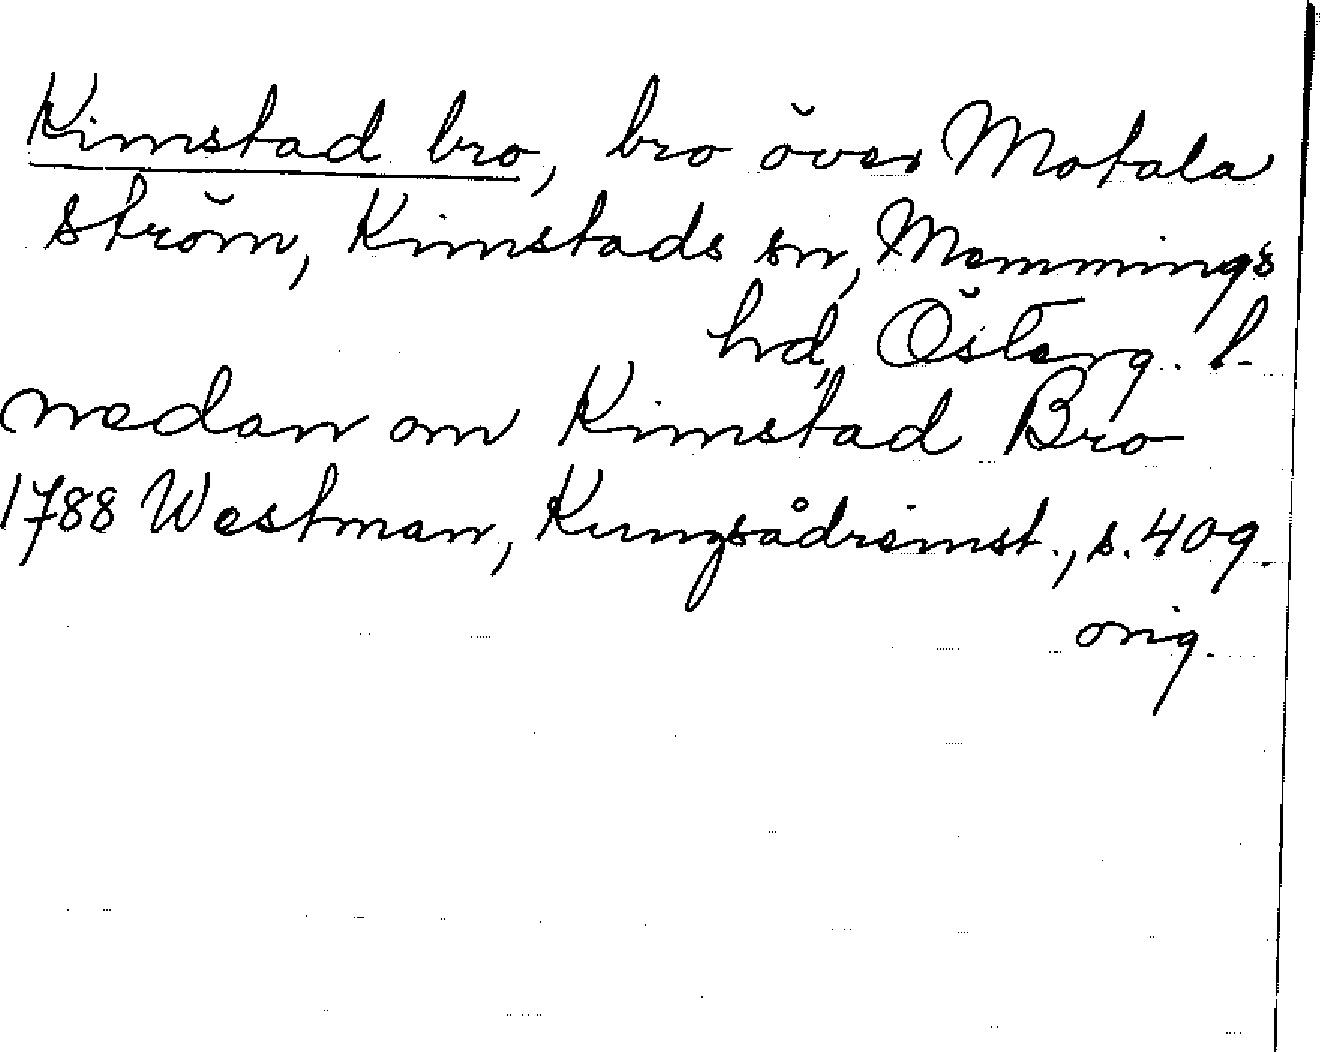 Kimstad bro, bro över Motala
ström, Kimstads sn, Memmings
hd, Österg. l.
nedan om Kimstad Bro
1788 Westman, Kungsådreinst., s. 409.
orig.